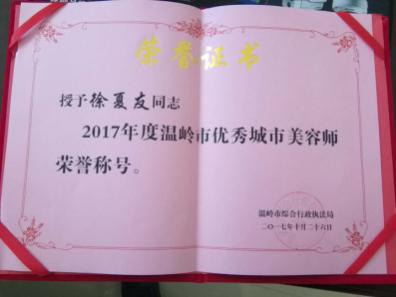 荣誉证书
授予徐夏友同志
2017年度温岭市优秀城市美容师
荣誉称号。
温岭市综合行政执法局
二〇一七年十月二十六日